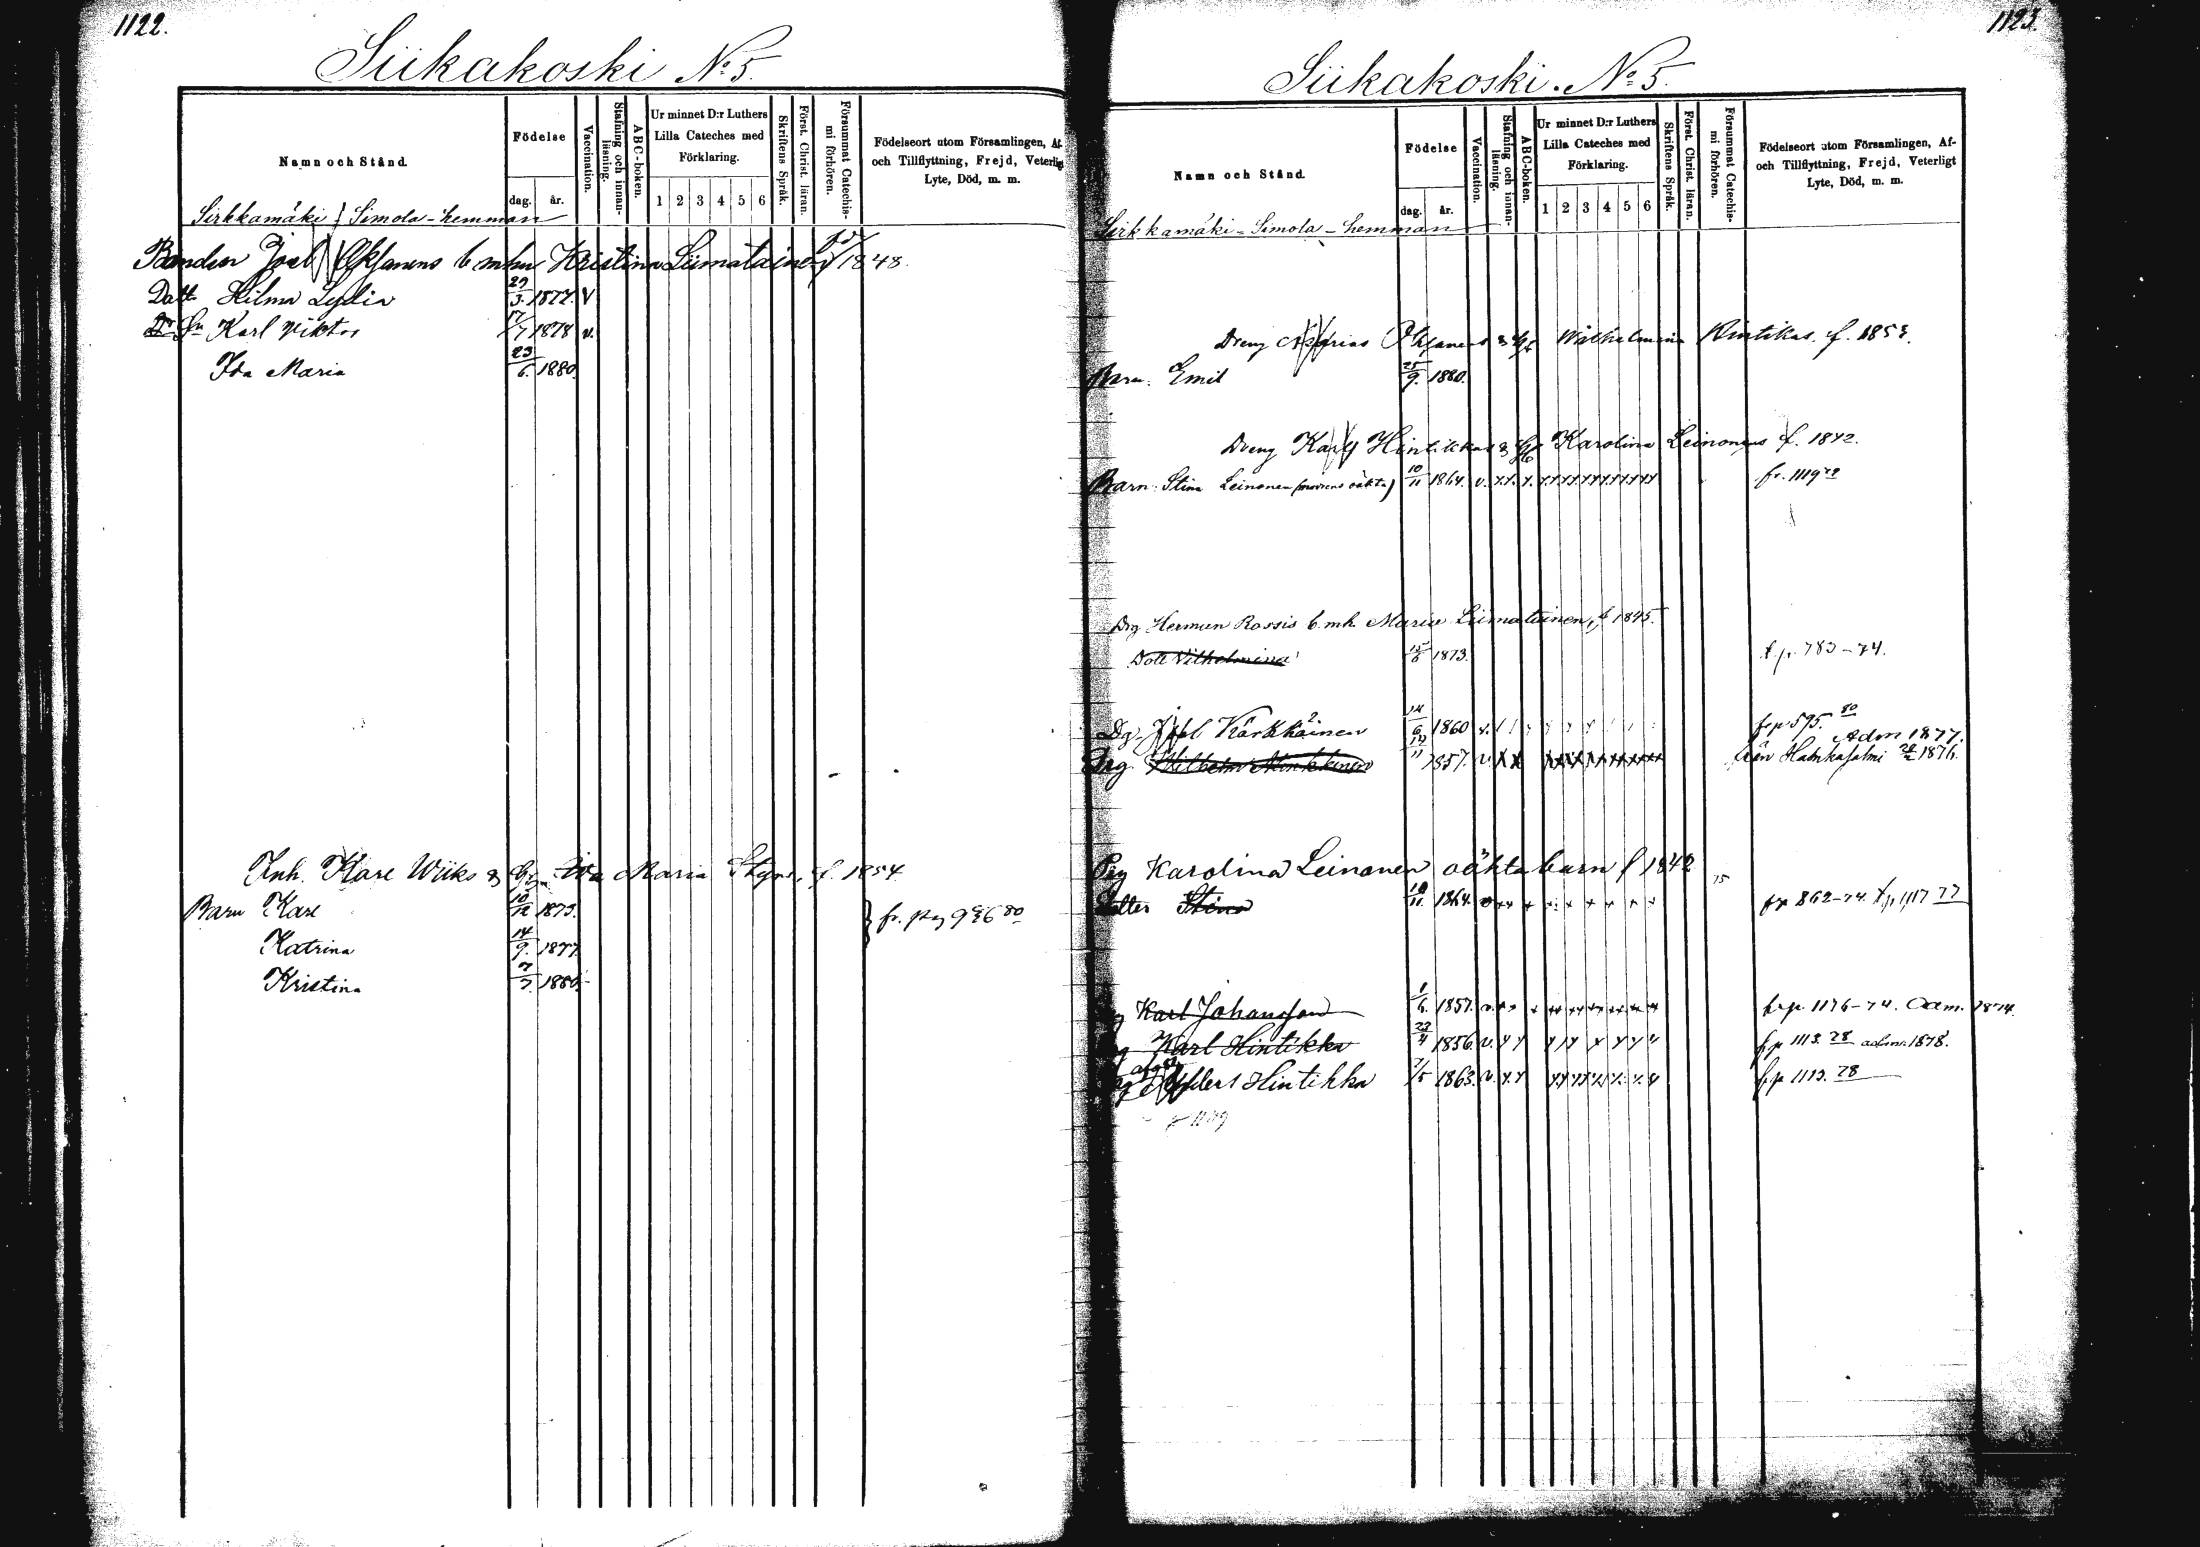 1122.
Siikakoski No 5.
Namn och Stånd.
Födelse
dag. år.
Vaccination.
Stafning och innanläsning.
ABC-boken.
Ur minnet D:r Luthers
Lilla Cateches med
Förklaring.
1 2 3 4 5 6
Skriftens Språk.
Först. Christ. läran.
Försummat Catechismi förhören.
Födelseort utom Församlingen, Af-
och Tillflyttning, Frejd, Veterligt
Lyte, Död, m. m.
Sirkkamäki Simola-hemman
Bonden Joel Oksanens b. mhu Kristina Liimatainen f 1848.
Dott. Hilma Lydia 29/3. 1877. V
Sn Karl Viktor 17/7 1878 v.
Ida Maria 23/6. 1880.
Inh. Karl Wiiks & Maria f. 1854
Barn Karl 10/12 1873.
fr. pag 80
Katrina 14/9. 1877.
Kristina 1880.
1123.
Siikakoski. No 5.
Namn och Stånd.
Födelse
dag. år.
Vaccination.
Stafning och innanläsning.
ABC-boken.
Ur minnet D:r Luthers
Lilla Cateches med
Förklaring.
1 2 3 4 5 6
Skriftens Språk.
Först. Christ. läran.
Försummat Catechismi förhören.
Födelseort utom Församlingen, Af-
och Tillflyttning, Frejd, Veterligt
Lyte, Död, m. m.
Sirkkamäki-Simola-hemman
Dreng Oksanens & Wilhelmina f. 1853.
Barn. Emil 25/9. 1880.
Dreng Karl Hintikkas & Karolina Leinonens f. 1842.
Barn: Stina Leinonen (moderns oäkta) 10/11 1864. v. x.x. x. xxxxxxxxxxxx fr. 1119
Drg Herman Rossis b. mh. Maria Liimatainen, f 1845.
Dott Vilhelmina 1873. t. p. 783-74.
Dg. Joel Kärkkäinen 14/6 1860 v. frp 595. 80
Adm 1877.
Drg 1857. v. x x från Hankasalmi 1876.
Pig Karolina Leinonen oäkta barn f 1842
Dotter Stina 10/11. 1864. v xx x x x x x x x fp 862-74. tp 1117 77
Karl Johansson 1/6. 1857. v. frp. 1176-74. Adm. 1874.
Karl Hintikka 22/4 1856. v. x x fp 1113. 78 adm. 1878.
Hintikka 7/5 1863. v. x. x fp 1113. 78